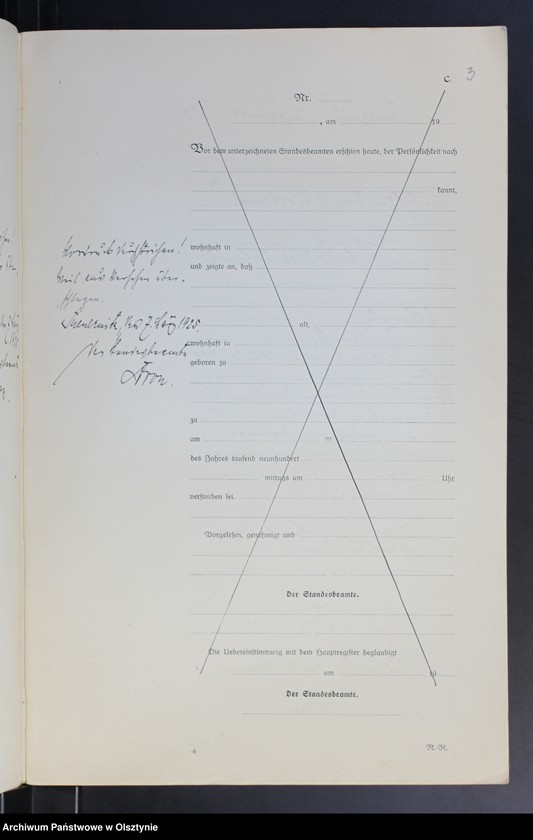 C. 3
Nr.
, am 19
Vor dem unterzeichneten Standesbeamten erschien heute, der Persönlichkeit nach
kannt,
wohnhaft in
und zeigte an, daß
alt,
wohnhaft in
geboren zu
zu
am
des Jahres tausend neunhundert
mittags um Uhr
verstorben sei.
Vorgelesen, genehmigt und
Der Standesbeamte.
Die Uebereinstimmung mit dem Hauptregister beglaubigt
am 19
Der Standesbeamte.
4 N.-R.
Vordruck durchstrichen!
Weil aus Versehen über-
den 7. 1925.
Der Standesbeamte
Aron.
Archiwum Państwowe w Olsztynie